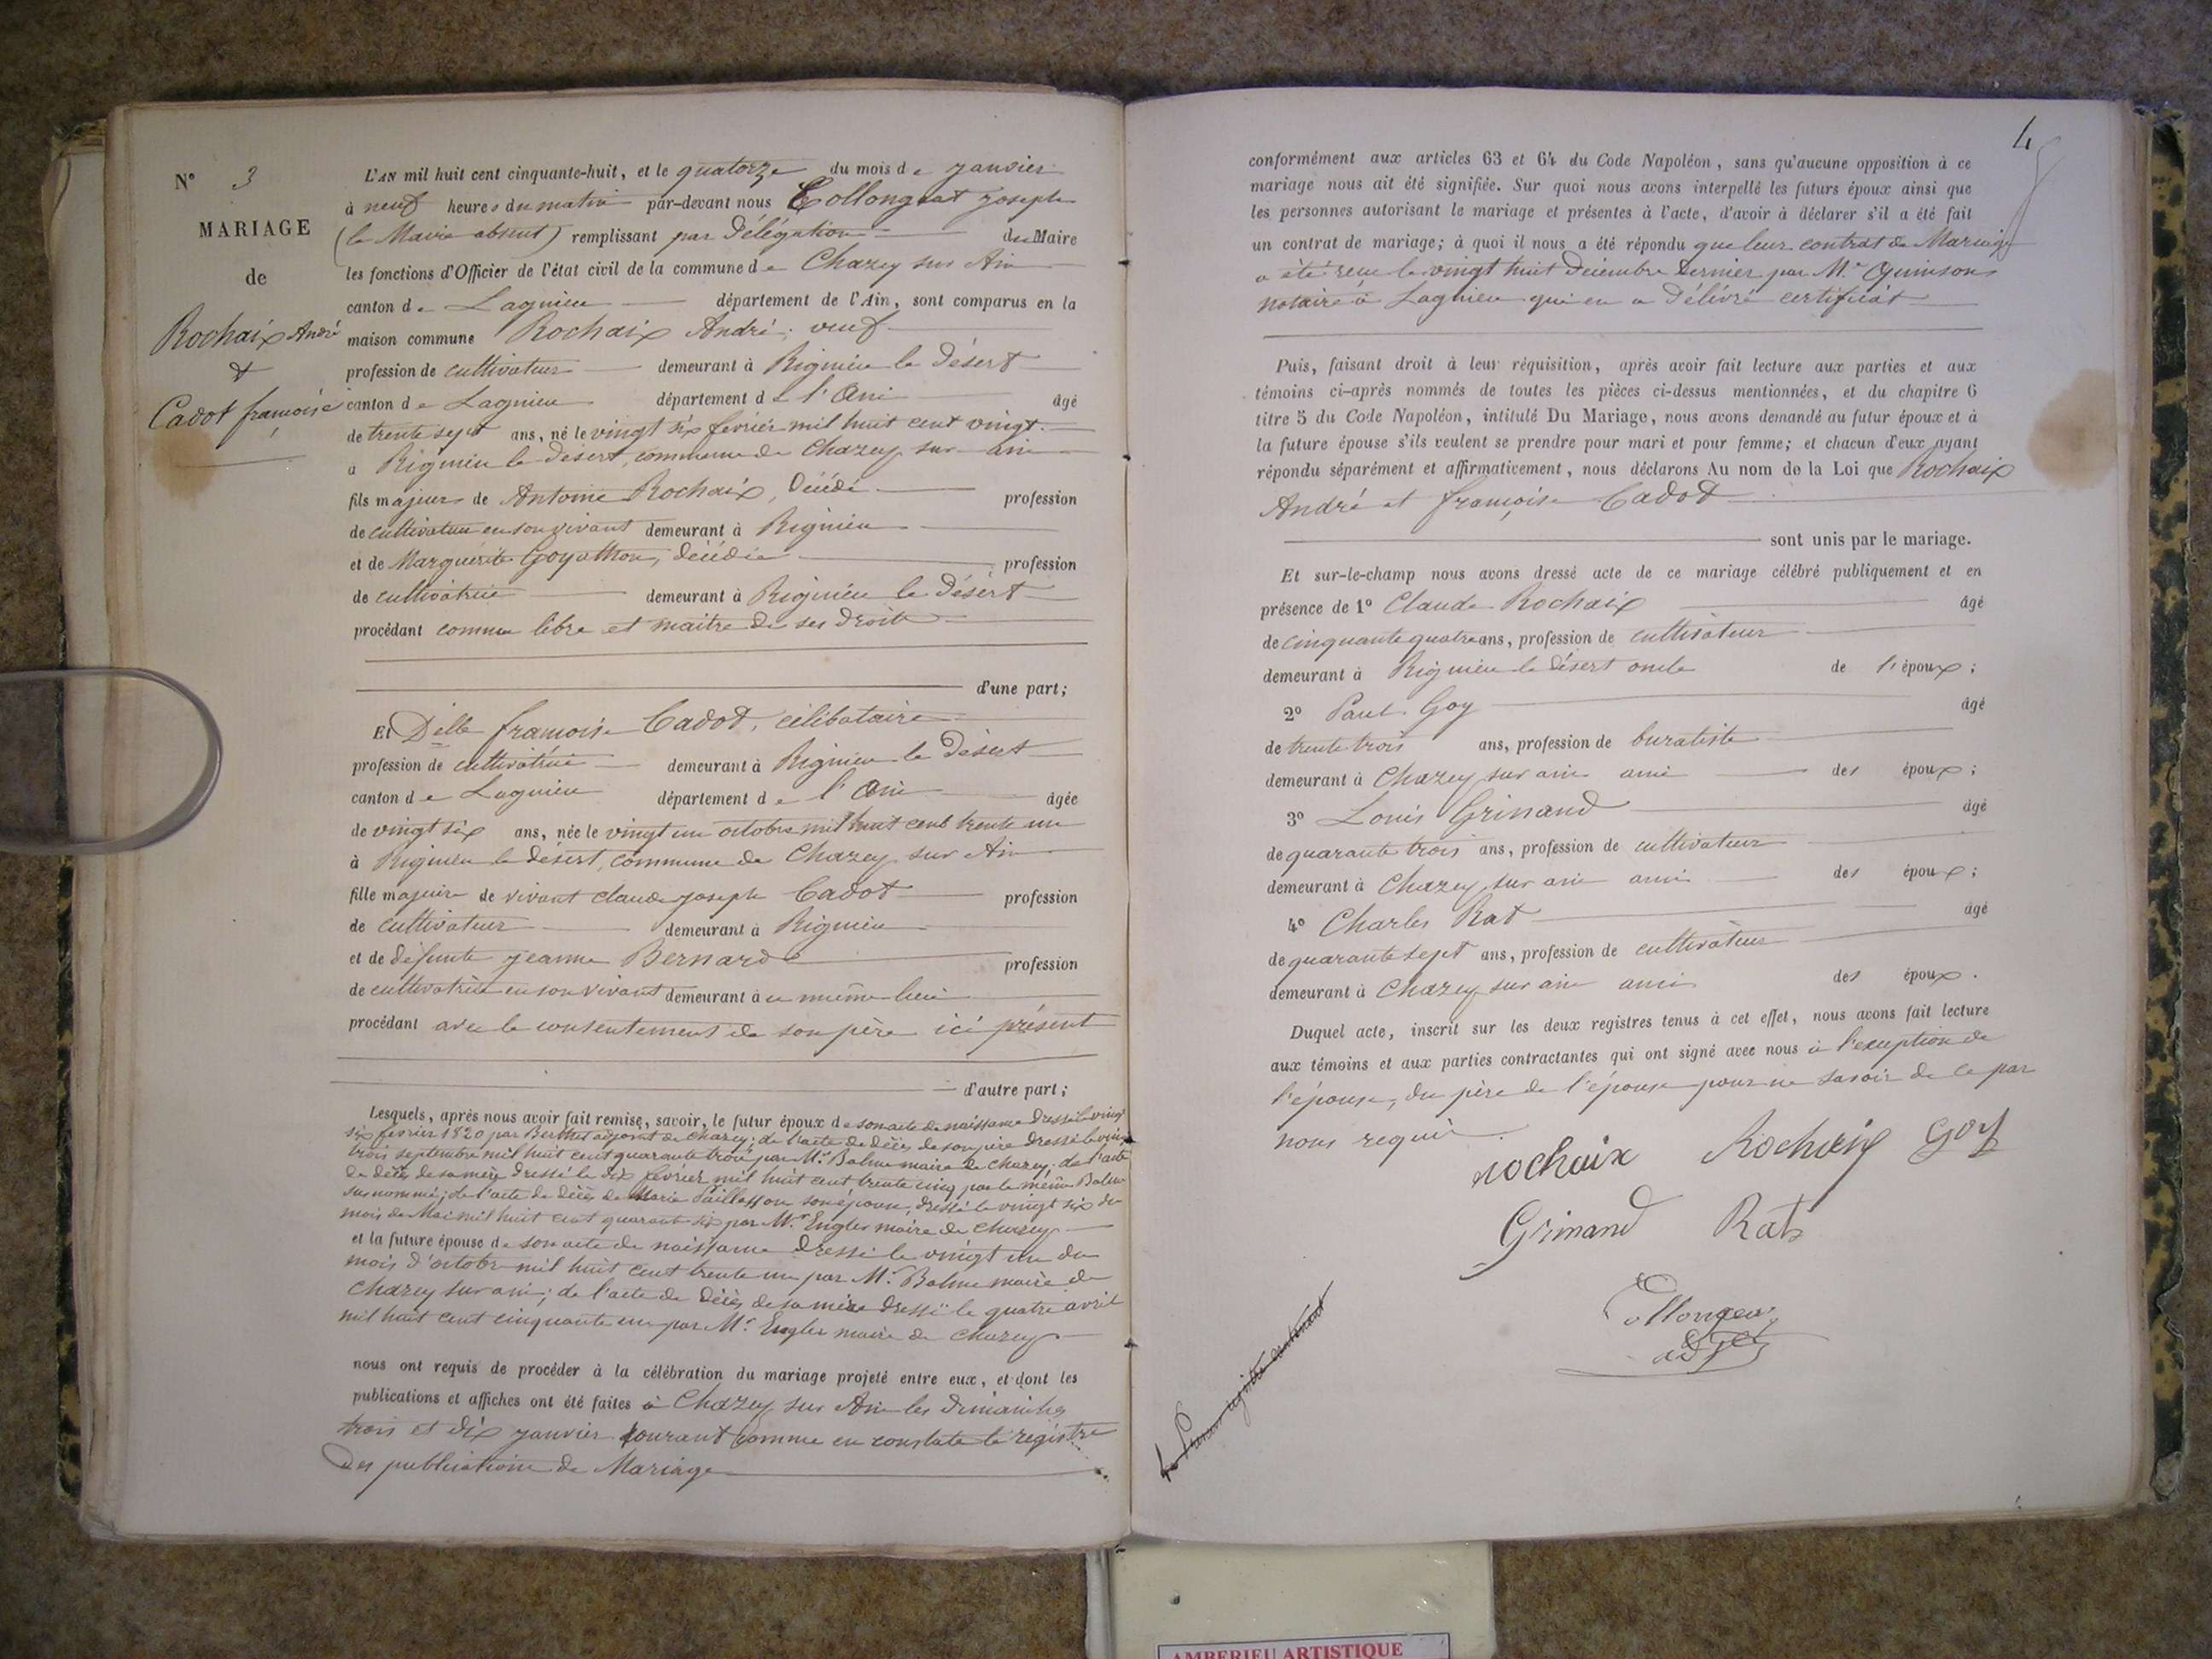 N° 3
MARIAGE
de
Rochaix André
&
Cadot françoise
L'AN mil huit cent cinquante-huit, et le quatorze du mois de janvier
à neuf heures du matin par-devant nous Collongeat joseph
(le Maire absent) remplissant par délégation du Maire
les fonctions d'Officier de l'état civil de la commune de Chazey sur Ain
canton de Lagnieu département de l'Ain, sont comparus en la
maison commune Rochaix André, veuf
profession de cultivateur demeurant à Rignieu le Désert
canton de Lagnieu département de l'Ain âgé
de trente sept ans, né le vingt six fevrier mil huit cent vingt
à Rignieu le désert, commune de Chazey sur ain
fils majeur de Antoine Rochaix, Décédé profession
de cultivateur en son vivant demeurant à Rignieu
et de Marguerite Goyatton, décédée profession
de cultivatrice demeurant à Rignieu le Désert
procédant comme libre et maitre de ses droits
d'une part;
Et Delle françoise Cadot, célibataire
profession de cultivatrice demeurant à Rignieu le Désert
canton de Lagnieu département de l'Ain âgée
de vingt six ans, née le vingt un octobre mil huit cent trente un
à Rignieu le désert, commune de Chazey sur Ain
fille majeure de vivant claude joseph Cadot profession
de cultivateur demeurant à Rignieu
et de défunte jeanne Bernard profession
de cultivatrice en son vivant demeurant à ce même lieu
procédant avec le consentement de son père ici présent
d'autre part;
Lesquels, après nous avoir fait remise, savoir, le futur époux de son acte de naissance dressé le vingt
six fevrier 1820 par Berthet adjoint de chazey; de l'acte de décès de son père dressé le vingt
trois septembre mil huit cent quarante trois par Mr Balme maire de chazey; de l'acte
de décès de sa mère dressé le dix février mil huit cent trente cinq par le même Balme
susnommé; de l'acte de décès de Marie Paillasson son épouse, dressé le vingt six du
mois de Mai mil huit cent quarante six par Mr Engler maire de chazey
et la future épouse de son acte de naissance dressé le vingt un du
mois d'octobre mil huit cent trente un par Mr Balme maire de
chazey sur ain; de l'acte de décès de sa mère dressé le quatre avril
mil huit cent cinquante un par Mr Engler maire de chazey
nous ont requis de procéder à la célébration du mariage projeté entre eux, et dont les
publications et affiches ont été faites à Chazey sur Ain les dimanches
trois et dix janvier courant comme en constate le régistre
des publications de Mariage
4
conformément aux articles 63 et 64 du Code Napoléon, sans qu'aucune opposition à ce
mariage nous ait été signifiée. Sur quoi nous avons interpellé les futurs époux ainsi que
les personnes autorisant le mariage et présentes à l'acte, d'avoir à déclarer s'il a été fait
un contrat de mariage; à quoi il nous a été répondu que leur contrat de Mariage
a été reçu le vingt huit décembre dernier par Me Quinson
notaire à Lagnieu qui en a délivré certificat
Puis, faisant droit à leur réquisition, après avoir fait lecture aux parties et aux
témoins ci-après nommés de toutes les pièces ci-dessus mentionnées, et du chapitre 6
titre 5 du Code Napoléon, intitulé Du Mariage, nous avons demandé au futur époux et à
la future épouse s'ils veulent se prendre pour mari et pour femme; et chacun d'eux ayant
répondu séparément et affirmativement, nous déclarons Au nom de la Loi que Rochaix
André et françoise Cadot
sont unis par le mariage.
Et sur-le-champ nous avons dressé acte de ce mariage célébré publiquement et en
présence de 1° Claude Rochaix âgé
de cinquante quatre ans, profession de cultivateur
demeurant à Rignieu le désert oncle de l'époux;
2° Paul Goy âgé
de trente trois ans, profession de buraliste
demeurant à Chazey sur ain ami des époux;
3° Louis Grinand âgé
de quarante trois ans, profession de cultivateur
demeurant à Chazey sur ain ami des époux;
4° Charles Rat âgé
de quarante sept ans, profession de cultivateur
demeurant à Chazey sur ain ami des époux.
Duquel acte, inscrit sur les deux registres tenus à cet effet, nous avons fait lecture
aux témoins et aux parties contractantes qui ont signé avec nous à l'exception de
l'épouse, du père de l'épouse pour ne savoir de ce par
nous requis.
rochaix Rochaix Goy
Grinand Rat
Collongeat
adjt
AMBERIEU ARTISTIQUE